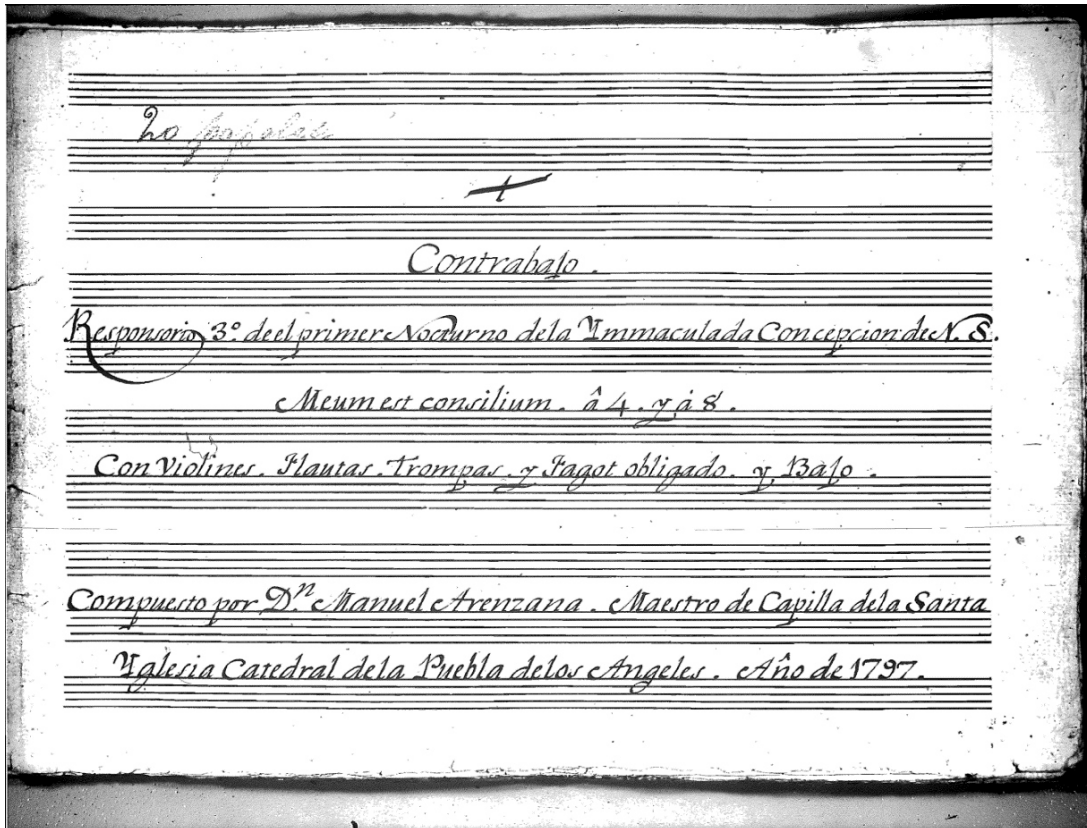 Contrabajo.
Responsorio 3º. de el primer Nocturno dela Ymmaculada Concepcion de N. S.
Meum est consilium. â 4. y, â 8.
Con Violines. Flautas. Trompas. y Fagot obligado. y, Bajo.
Compuesto por D.ⁿ Manuel Arenzana. Maestro de Capilla dela Santa
Yglesia Catedral dela Puebla delos Angeles. Año de 1797.